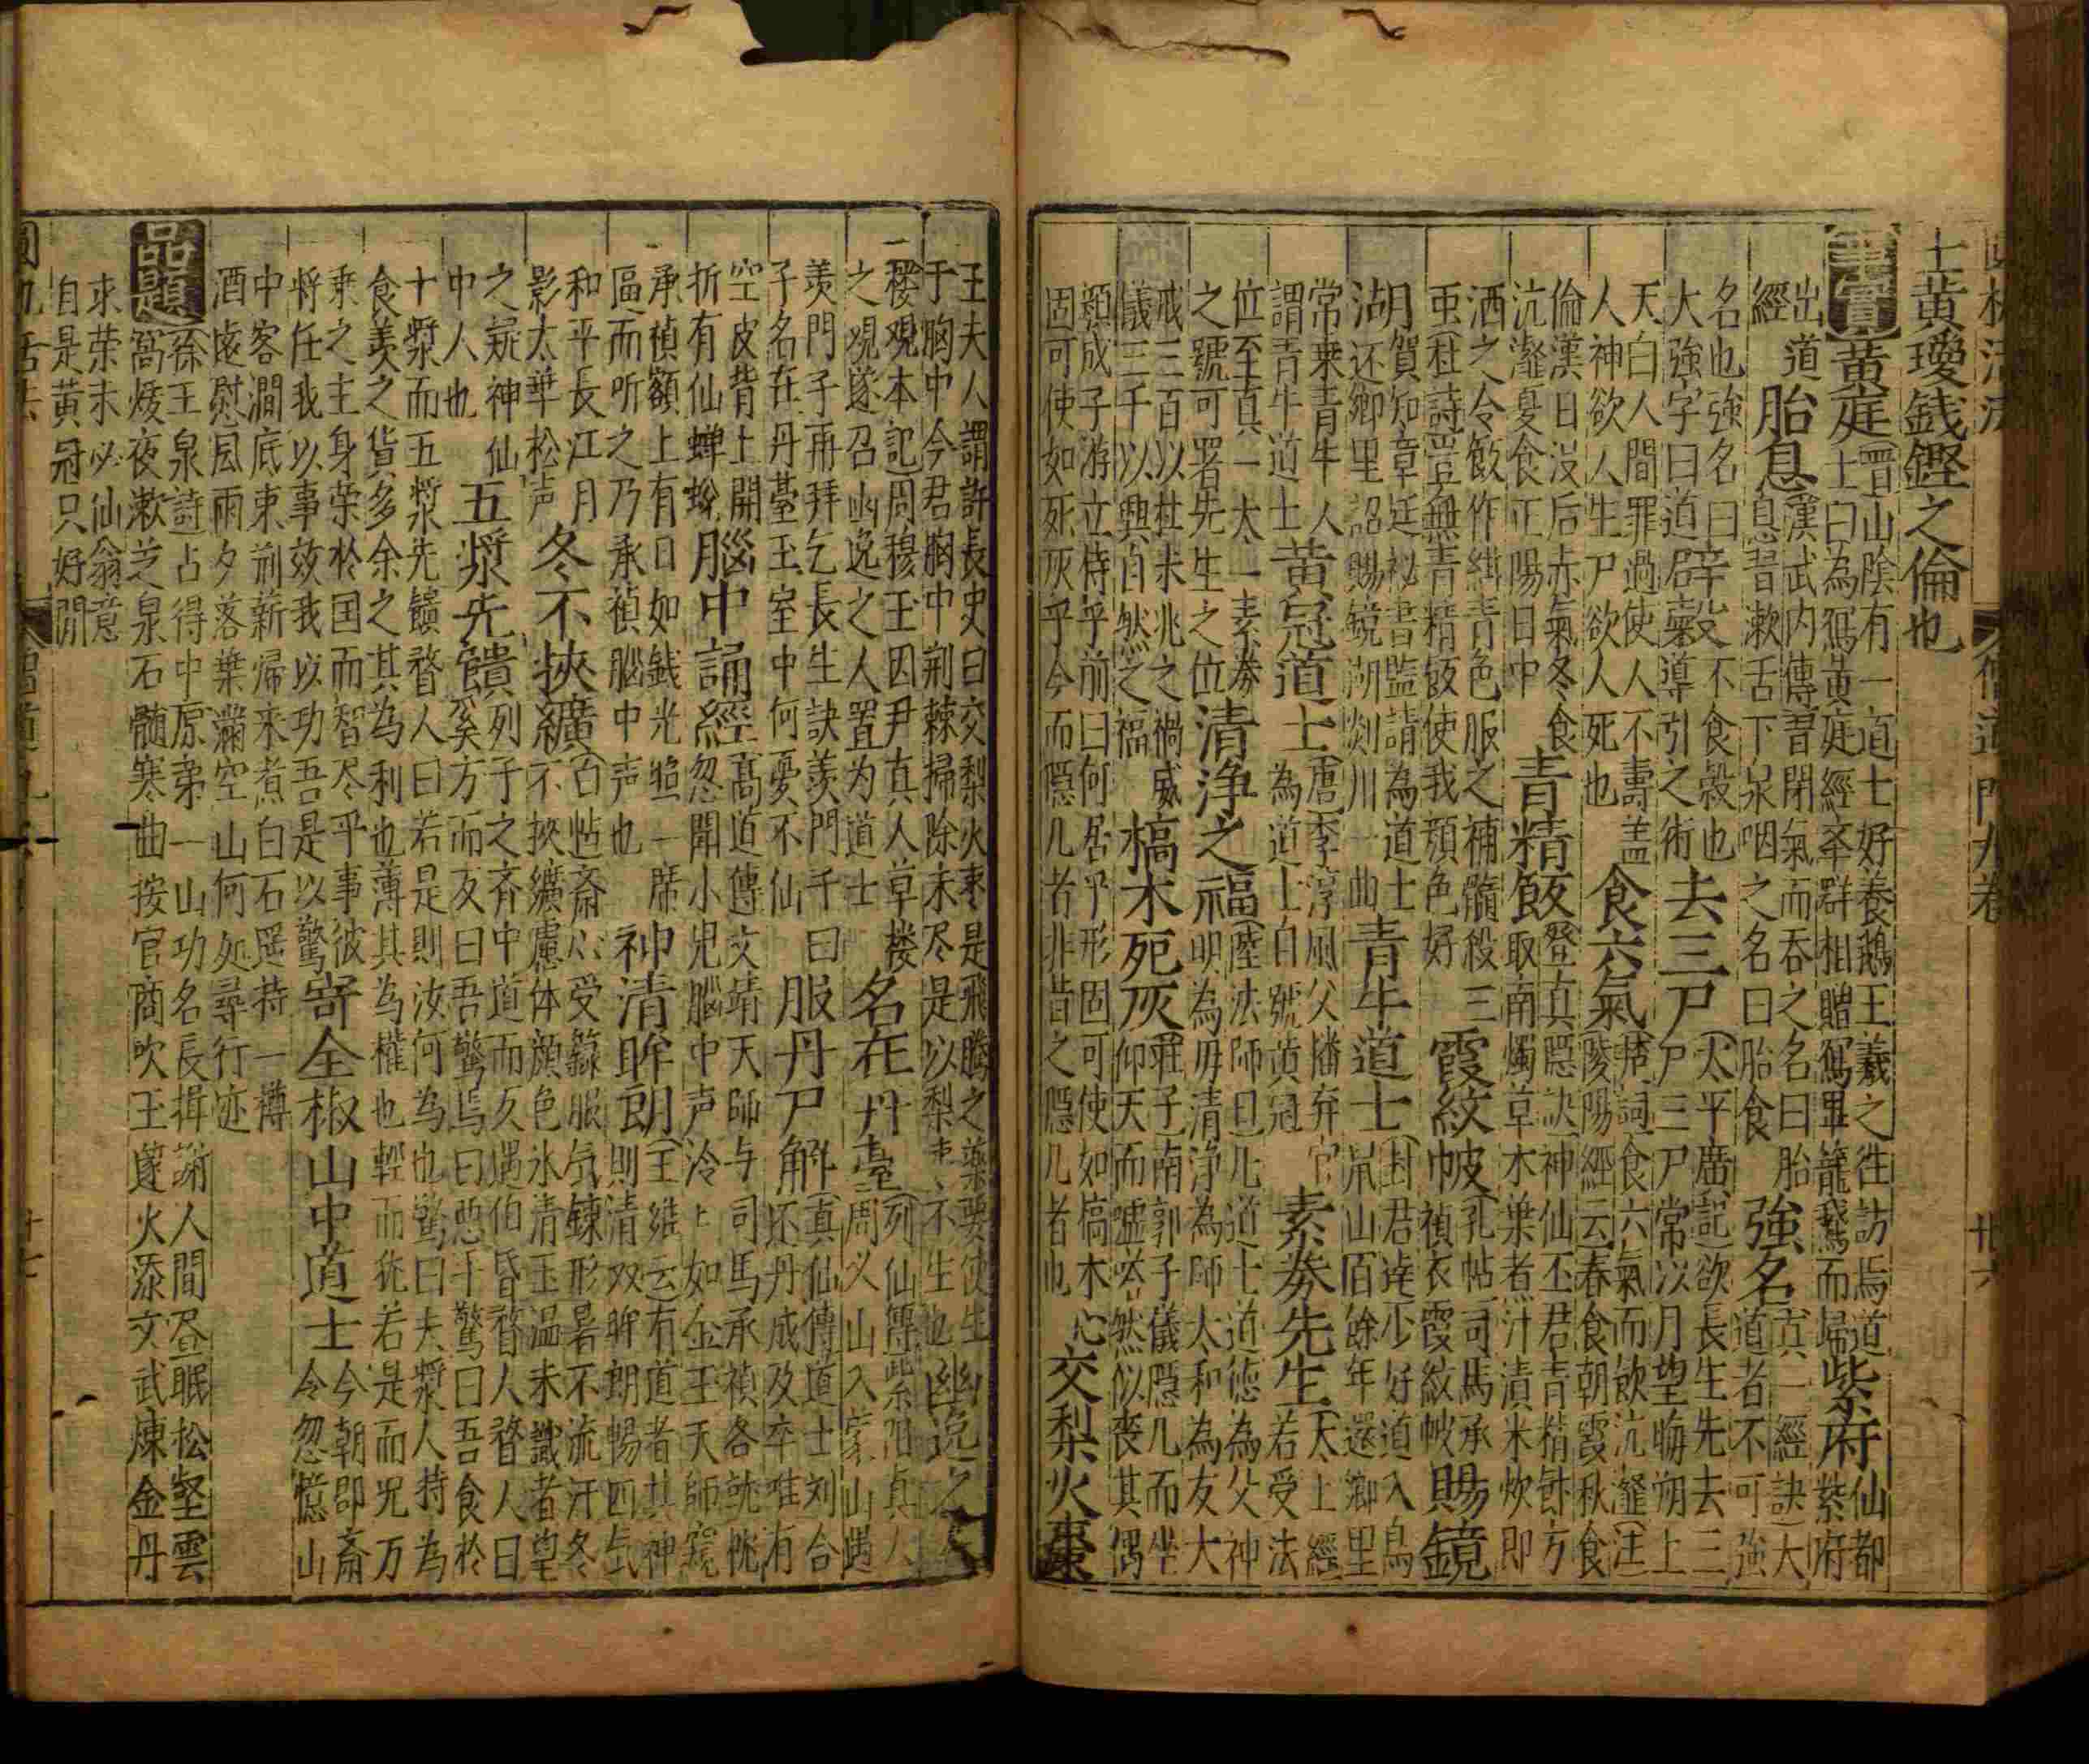 士黄瓊錢鏗之倫也
事實
黄庭
晋山陰有一道士好養鵝王羲之徃訪焉道
士曰為寫黄庭經奉群相贈寫畢籠鵞而歸
紫府
仙都
紫府
出道
經
胎息
漢武内傳習閉氣而吞之名曰胎
息習漱舌下泉咽之名曰胎食
強名
真一經訣大
道者不可強
名也強名曰
大強字曰道
辟穀
不食穀也
導引之術
去三尸
太平廣記欲長生先去三
尸三尸常以月望晦朔上
天白人間罪過使人不壽盖
人神欲人生尸欲人死也
食六氣
楚詞食六氣而飲沆瀣注
陵陽經云春食朝霞秋食
倫漢日没后赤氣冬食
沆瀣夏食正陽日中
青精飯
登真隱訣神仙丕君青精飿方
取南燭草木葉煮汁漬米炊即
洒之令飯作紺青色服之補髓殺三
杜詩豈無青精飯使我顔色好
霞紋帔
孔帖司馬承
禎衣霞紋帔
賜鏡
月賀知章廷秘書監請為道士
湖还鄉里詔賜鏡湖剡川一曲
青牛道士
封君達少好道入鳥
鼠山百餘年還鄉里
常乗青牛人
謂青牛道士
黄冠道士
唐李淳風父播弃官
為道士自號黄冠
素券先生
太上經
若受法
位至真一太一素券
之號可署先生之位
清浄之福
陸法師曰凡道士道德為父神
明為毋清浄為師太和為友大
戒三百以杜未兆之禍威
儀三千以興自然之福
槁木死灰
莊子南郭子儀隱几而坐
仰天而嘘嗒然似喪其偶
顔成子游立侍乎前曰何居乎形固可使如槁木心
固可使如死灰乎今而隱几者非昔之隱几者也
交梨火棗
王夫人謂許長史曰交梨火枣是飛騰之藥要使生
于胸中今君胸中荆棘掃除未尽是以梨枣不生也
幽逸之人
楼观本記周穆王因尹真人草楼
之观遂召幽逸之人置为道士
名在丹臺
列仙傳紫阳真人
周义山入蒙山遇
羨門子再拜乞長生訣羨門千曰
子名在丹臺玉室中何憂不仙
服丹尸解
真仙傳道士刘合
还丹成及卒唯有
空皮背上開
折有仙蝉蛻
腦中誦經
高道傳文靖天師与司馬承禎各就枕
忽聞小児腦中声泠々如金玉天師窺
承禎額上有日如錢光照一席
區而听之乃承禎腦中声也
神清眸朗
王維云有道者其神
則清双眸朗暢四气
和平長江月
影太華松声
冬不挾纊
白帖斎心受籙服気錬形暑不流汗冬
不挾纊慮体顔色氷清玉温未識者望
之疑神仙
中人也
五漿先饋
列子之齐中道而反遇伯昏瞀人瞀人曰
奚方而反曰吾驚焉曰惡乎驚曰吾食於
十漿而五漿先饋瞀人曰若是則汝何為也驚曰夫漿人持為
食羹之貨多余之其為利也薄其為權也輕而犹若是而况万
乗之主身荣於国而智尽乎事彼
将任我以事效我以功吾是以驚
寄全椒山中道士
今朝郡斎
令忽憶山
中客澗底束荊薪帰來煮白石遥持一樽
酒遠慰風雨夕落葉满空山何処尋行迹
品題
徐王泉詩占得中原第一山功名長揖謝人間昼眠松壑雲
窩煖夜漱芝泉石髓寒曲按官商吹玉篴火添文武煉金丹
求荣未必仙翁意
自是黄冠只好閒